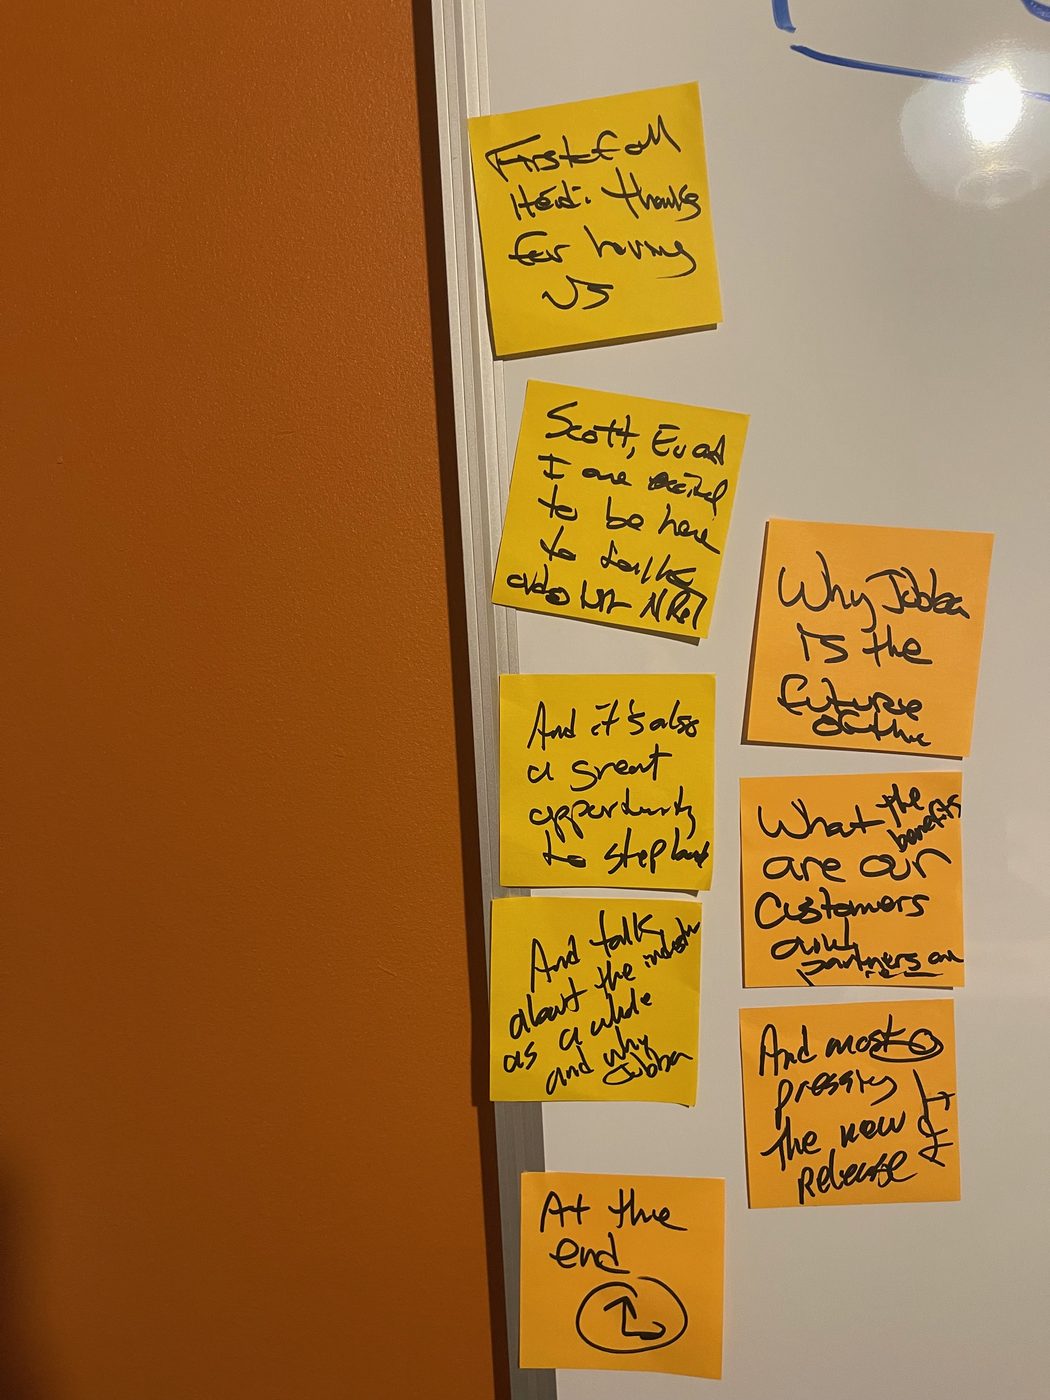 First of all
Heidi thanks
for having
us
Scott, Ev and
I are excited
to be here
to talk
NRel
And it's also
a great
opportunity
to step back
And talk
about the industry
as a whole
and why
Jabba
At the
end
Why Jabba
is the
future
of the
What the
benefits
are our
Customers
and
partners
And most
pressing
the new
release